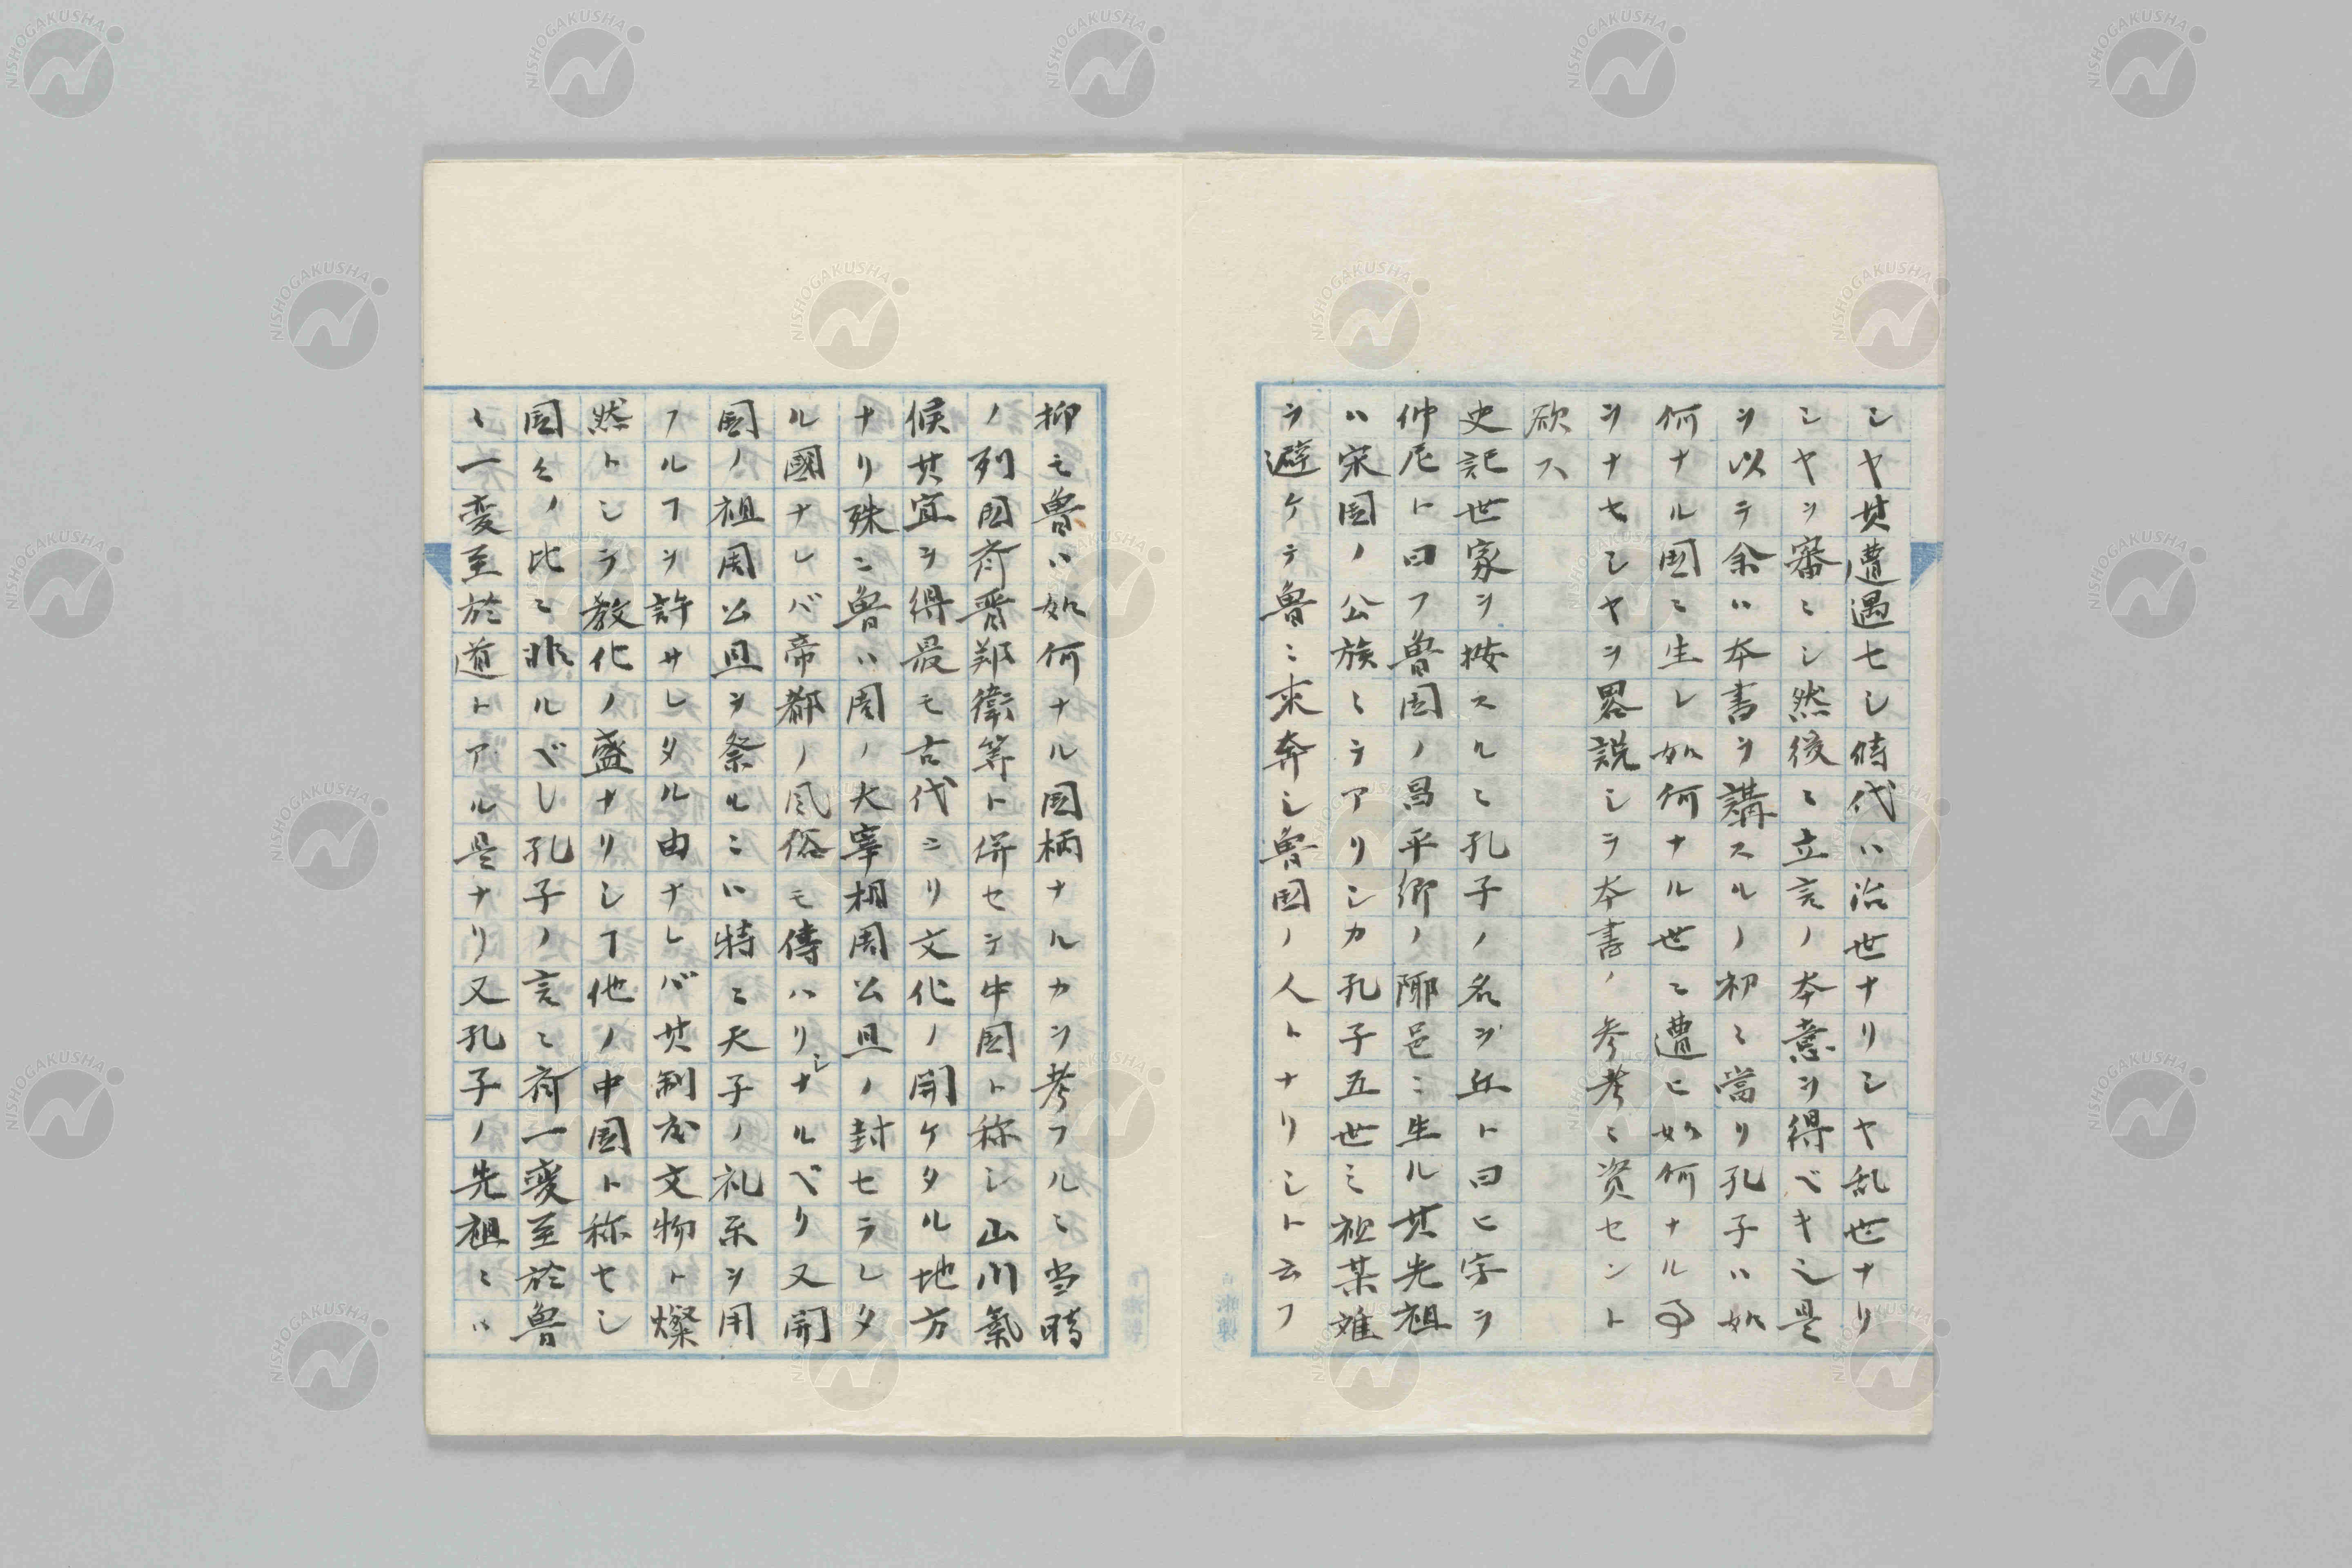 シヤ其遭遇セシ時代ハ治世ナリシヤ乱世ナリ
シヤヲ審ニシ然後ニ立言ノ本意ヲ得ベキシ是
ヲ以テ余ハ本書ヲ講スルノ初ニ當リ孔子ハ如
何ナル国ニ生レ如何ナル世ニ遭ヒ如何ナル事
ヲナセシヤヲ畧説シテ本書ノ参考ニ資セント
欲ス
史記世家ヲ按スルニ孔子ノ名ヲ丘ト曰ヒ字ヲ
仲尼ト曰フ魯国ノ昌平郷ノ陬邑ニ生ル其先祖
ハ宋国ノ公族ニテアリシカ孔子五世ミ祖某難
ヲ避ケテ魯ニ来奔シ魯国ノ人トナリシト云フ
抑モ魯ハ如何ナル国柄ナルカヲ考フルニ当時
ノ列国斉晋鄭衛等ト併セテ中国ト称シ山川氣
候其宜ヲ得最モ古代ヨリ文化ノ開ケタル地方
ナリ殊ニ魯ハ周ノ大宰相周公旦ノ封セラレタ
ル國ナレバ帝都ノ風俗モ傳ハリシナルベリ又開
国ノ祖周公旦ヲ祭ルニハ特ニ天子ノ礼楽ヲ用
フルヿヲ許サレタル由ナレバ其制度文物ト燦
然トシテ教化ノ盛ナリシヿ他ノ中国ト称セシ
国々ノ比ニ非ルベし孔子ノ言ニ斉一変至於魯
ミ一変至於道トアル是ナリ又孔子ノ先祖ニハ
NISHOGAKUSHA